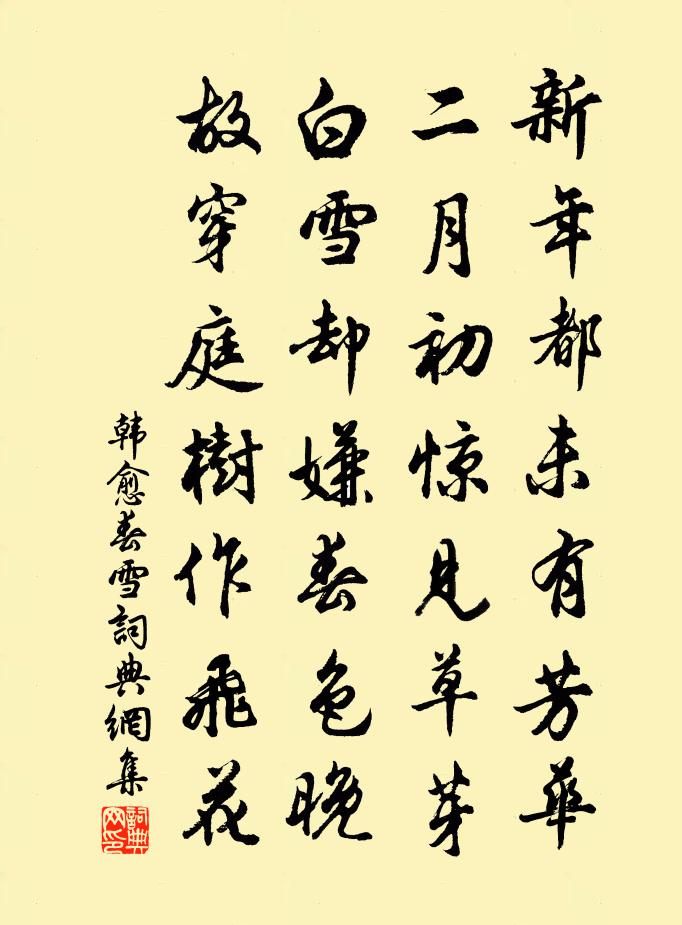 新年都未有芳華
二月初惊見草芽
白雪却嫌春色晚
故穿庭樹作飛花
韩愈春雪詞典網集
詞典网印